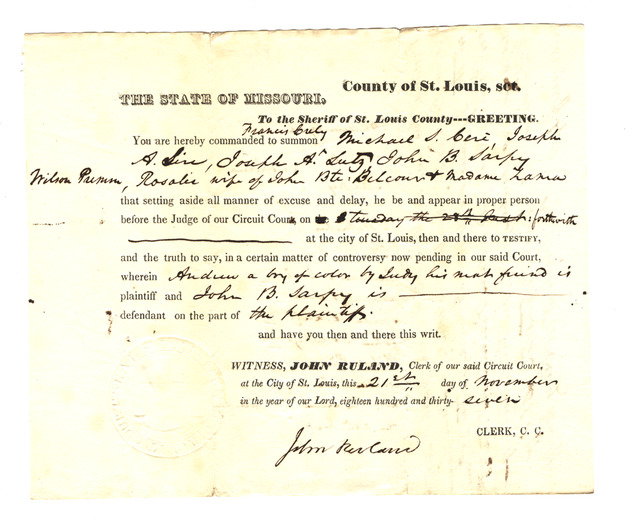 County of St. Louis, sct.
THE STATE OF MISSOURI,
To the Sheriff of St. Louis County---GREETING.
Francis Creely
You are hereby commanded to summon Michael S. Ceré, Joseph
A Sire, Joseph A. Lutz, John B. Sarpy
Wilson Primm, Rosalie wife of John Bte. Belcour & Madame
that setting aside all manner of excuse and delay, he be and appear in proper person
before the Judge of our Circuit Court, on tuesday the 28th Inst: forthwith
at the city of St. Louis, then and there to TESTIFY,
and the truth to say, in a certain matter of controversy now pending in our said Court,
wherein Andrew a boy of color by Judy his next friend is
plaintiff and John B. Sarpy is
defendant on the part of the plaintiff.
and have you then and there this writ.
WITNESS, JOHN RULAND, Clerk of our said Circuit Court,
at the City of St. Louis, this 21st day of November
in the year of our Lord, eighteen hundred and thirty-seven
CLERK, C. C.
John Ruland